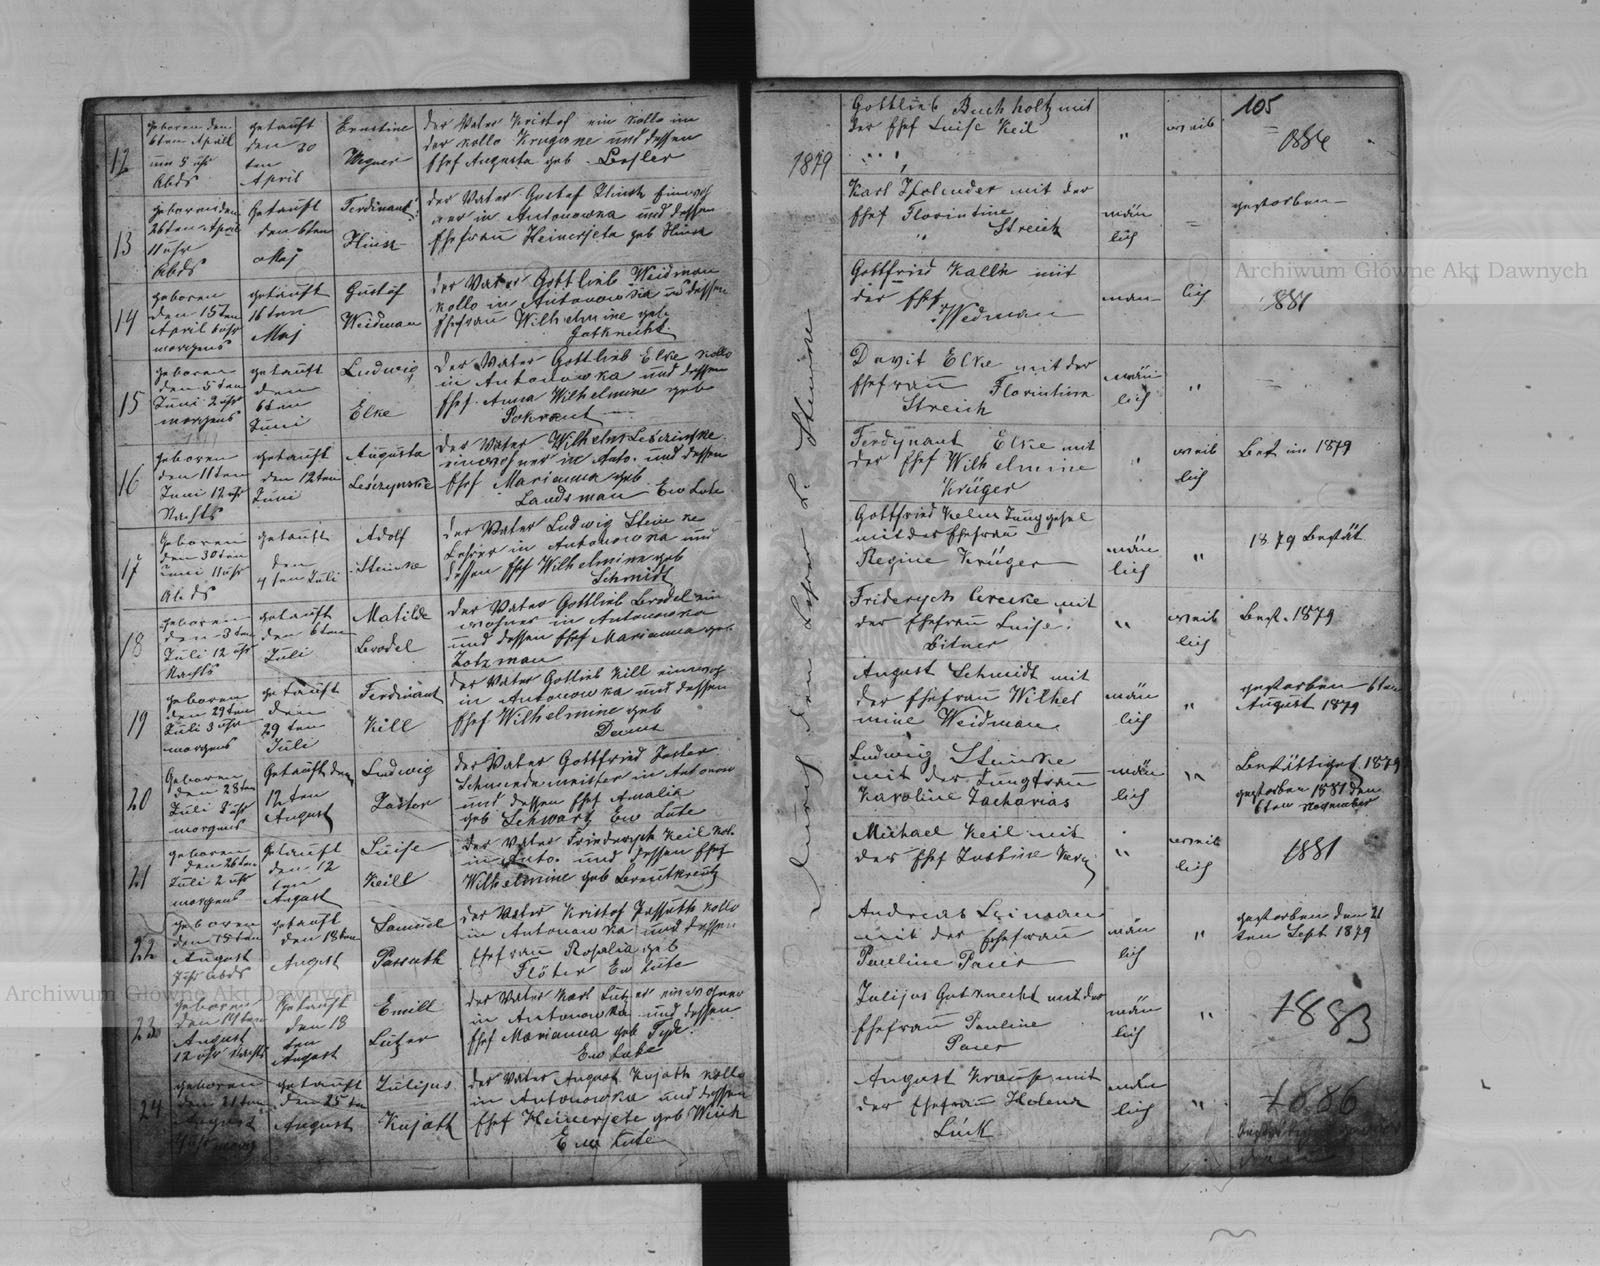 12
geboren den
6ten April
um 5 uhr
Abds
getauft
den 20
ten
April
Ernstine
Wegner
der Vater Kristof ein kollo im
der kollo und dessen
Ehef Augusta geb
13
geboren den
26ten April
11 uhr
Abds
Getauft
den 6ten
Maj
Ferdinant
Hinz
der Vater Gustaf Hinz Einwoh
ner in Antonowka und dessen
Ehefrau Heinerjeta geb Hinz
14
geboren
den 15ten
April 6 uhr
morgens
getauft
16ten
Maj
Gustof
Weidman
der Vater Gottlieb Weidman
kollo in Antonowka und dessen
Ehefrau Wilhelmine geb
Gutknecht
15
geboren
den 5ten
Juni 2 uhr
morgens
getauft
den
6ten
Juni
Ludwig
Elke
der Vater Gottlieb Elke kollo
in Antonowka und dessen
Ehef. Anna Wilhelmine geb
Pokrant
16
geboren
den 11ten
Juni 12 uhr
Nachts
getauft
den 12ten
Juni
Augusta
Lesczynske
der Vater Wilhelm Lesczinske
einwohner in Anto. und dessen
Ehef Marianna geb
Landsman Ew Lute
17
Geboren
den 30ten
Juni 11 uhr
Abds
getauft
den
4ten Juli
Adolf
Steinke
der Vater Ludwig Steinke
Lehrer in Antonowka und
dessen Ehef Wilhelmine geb
Schmidt
18
geboren
den 3ten
Juli 12 uhr
Nachts
getauft
den 6ten
Juli
Matilde
Brodel
der Vater Gottlieb Brodel ein
wohner in Antonowka
und dessen Ehef Marianna geb.
Zotzman
19
geboren
den 29ten
Juli 3 uhr
morgens
getauft
den
29 ten
Juli
Ferdinant
Kill
der Vater Gottlieb Kill einwoh
in Antonowka und dessen
Ehef Wilhelmine geb
20
Geboren
den 28ten
Juli 8 uhr
morgens
Getauft den
12ten
August
Ludwig
Zaster
der Vater Gottfried Zaster
Schneidemeister in Antonow
und dessen Ehef Amalia
geb Schwartz Ew Lute
21
geboren
den 26ten
Juli 2 uhr
morgens
Getauft
den 12
ten
August
Luise
Keill
der Vater Friederych Keil kol.
in Anto. und dessen Ehef
Wilhelmine geb Brentkreutz
22
geboren
den 18ten
August
Uhr Abds
getauft
den 18ten
August
Samuel
Passuth
der Vater Kristof Passuth kollo
in Antonowka und dessen
Ehefrau Rosalia geb
Flöter Ew Lute
23
geboren
den 14ten
August
12 uhr Nachts
Getauft
den 18
ten
August
Emill
Lutzer
der Vater Karl Lutzer einwohner
in Antonowka und dessen
Ehef Marianna geb
Ew Lute
24
geboren
den 21ten
August
getauft
den 25ten
August
Julijus
Kujath
der Vater August Kujath kollo
in Antonowka und dessen
Ehef Heinerjete geb
Ew Lute
1879
durch den Lehrer L. Steinke
105
Gottlieb Buchholtz mit
der Ehef Luise Keil
"
weib
1886
Karl Holender mit der
Ehef Florintine
" Streich
män
lich
gestorben
Gottfried Kalln mit
der Ehef
Wedman
man
lich
1881
Davit Elke mit der
Ehefrau Florintina
Streich
män
lich
"
Ferdynant Elke mit
der Ehef Wilhelmine
Krüger
"
weib
lich
Best im 1879
Gottfried Kelm Junggesel
mit der Ehefrau
Regine Krüger
män
lich
"
1879 Bestät
Friderych Grecke mit
der Ehefrau Luise.
Bitner
"
weib
lich
Best. 1879
August Schmidt mit
der Ehefrau Wilhel
mine Weidman
män
lich
"
gestorben 6ten
August 1879
Ludwig Steinke
mit der Jungfrau
Karoline Zacharias
män
lich
"
Bestättiget 1879
gestorben 1881 den
6ten November
Michael Keil mit
der Ehef Justine
"
weib
lich
1881
Andreas Leiman
mit der Ehefrau
Pauline Paier
män
lich
"
gestorben den 21
ten Sept 1879
Julijus Gutknecht mit der
Ehefrau Pauline
Paier
män
lich
"
1883
August Krause mit
der Ehefrau Helena
Lück
män
lich
"
1886
Archiwum Główne Akt Dawnych
Archiwum Główne Akt Dawnych